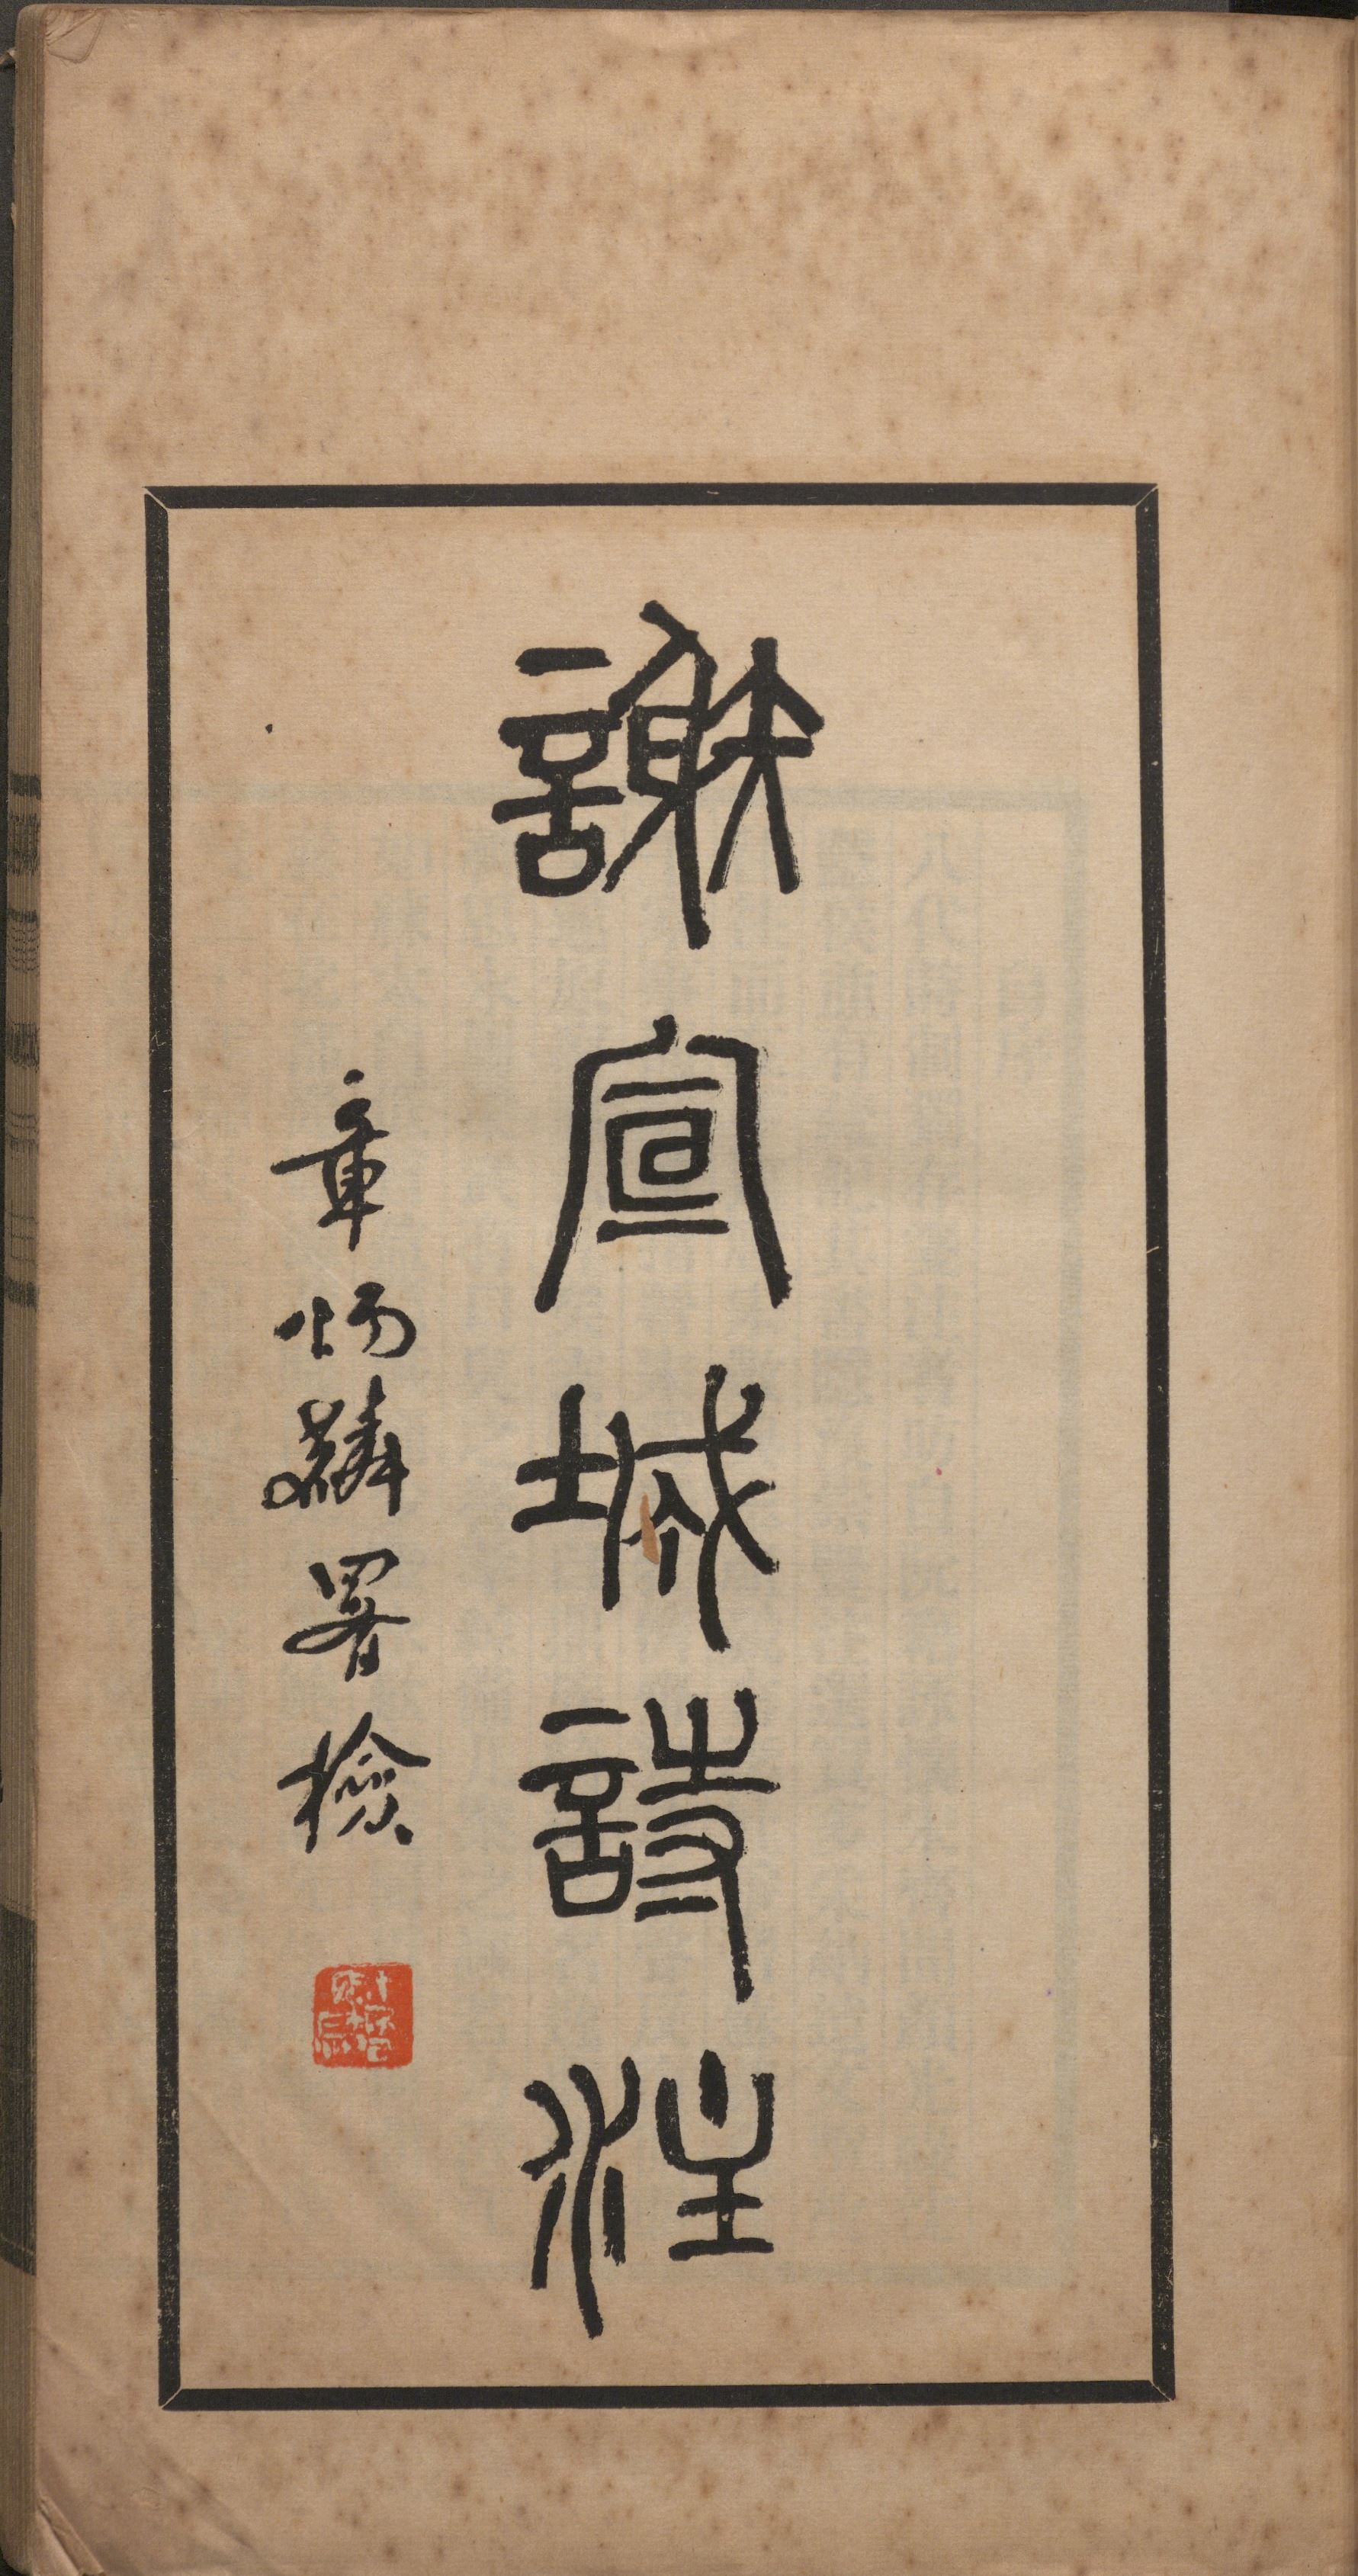 謝宣城詩注
章炳麟署檢